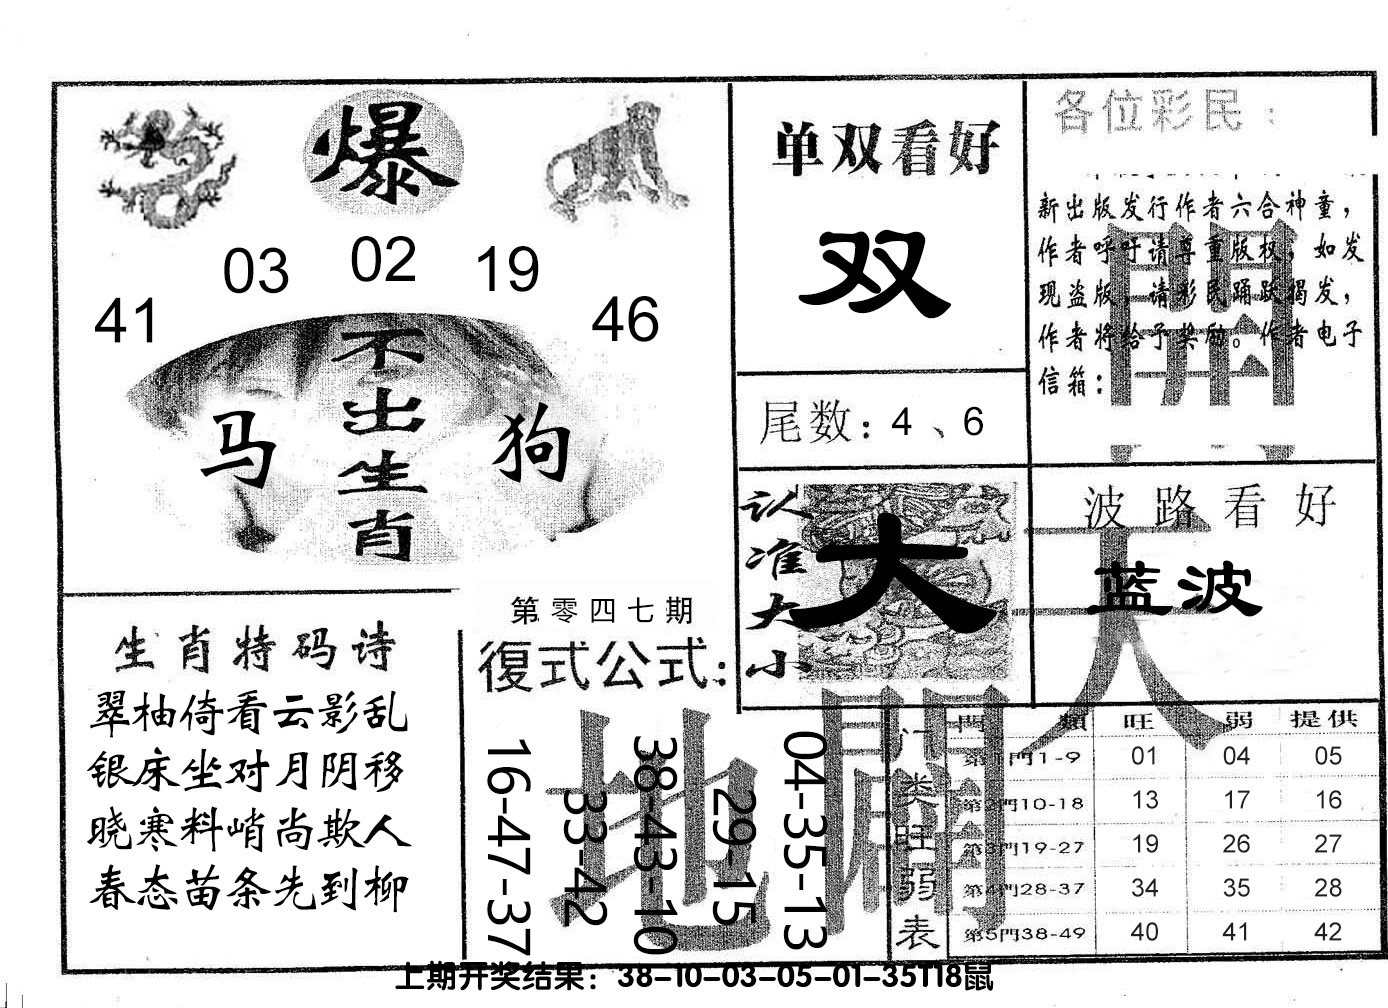 爆
03 02 19
41 46
不出生肖
马 狗
单双看好
双
尾数：4、6
各位彩民：
新出版发行作者六合神童，
作者呼吁请尊重版权，如发
现盗版，请彩民踊跃揭发，
作者将给予奖励。作者电子
信箱：
認准大小
大
波路看好
蓝波
生肖特码诗
翠柚倚看云影乱
银床坐对月阴移
晓寒料峭尚欺人
春态苗条先到柳
第零四七期
復式公式：
16-47-37
33-42
38-43-10
29-15
04-35-13
天
地
開
門类旺弱表
門類 旺 弱 提供
第1門1-9 01 04 05
第2門10-18 13 17 16
第3門19-27 19 26 27
第4門28-37 34 35 28
第5門38-49 40 41 42
上期开奖结果：38-10-03-05-01-35T18鼠